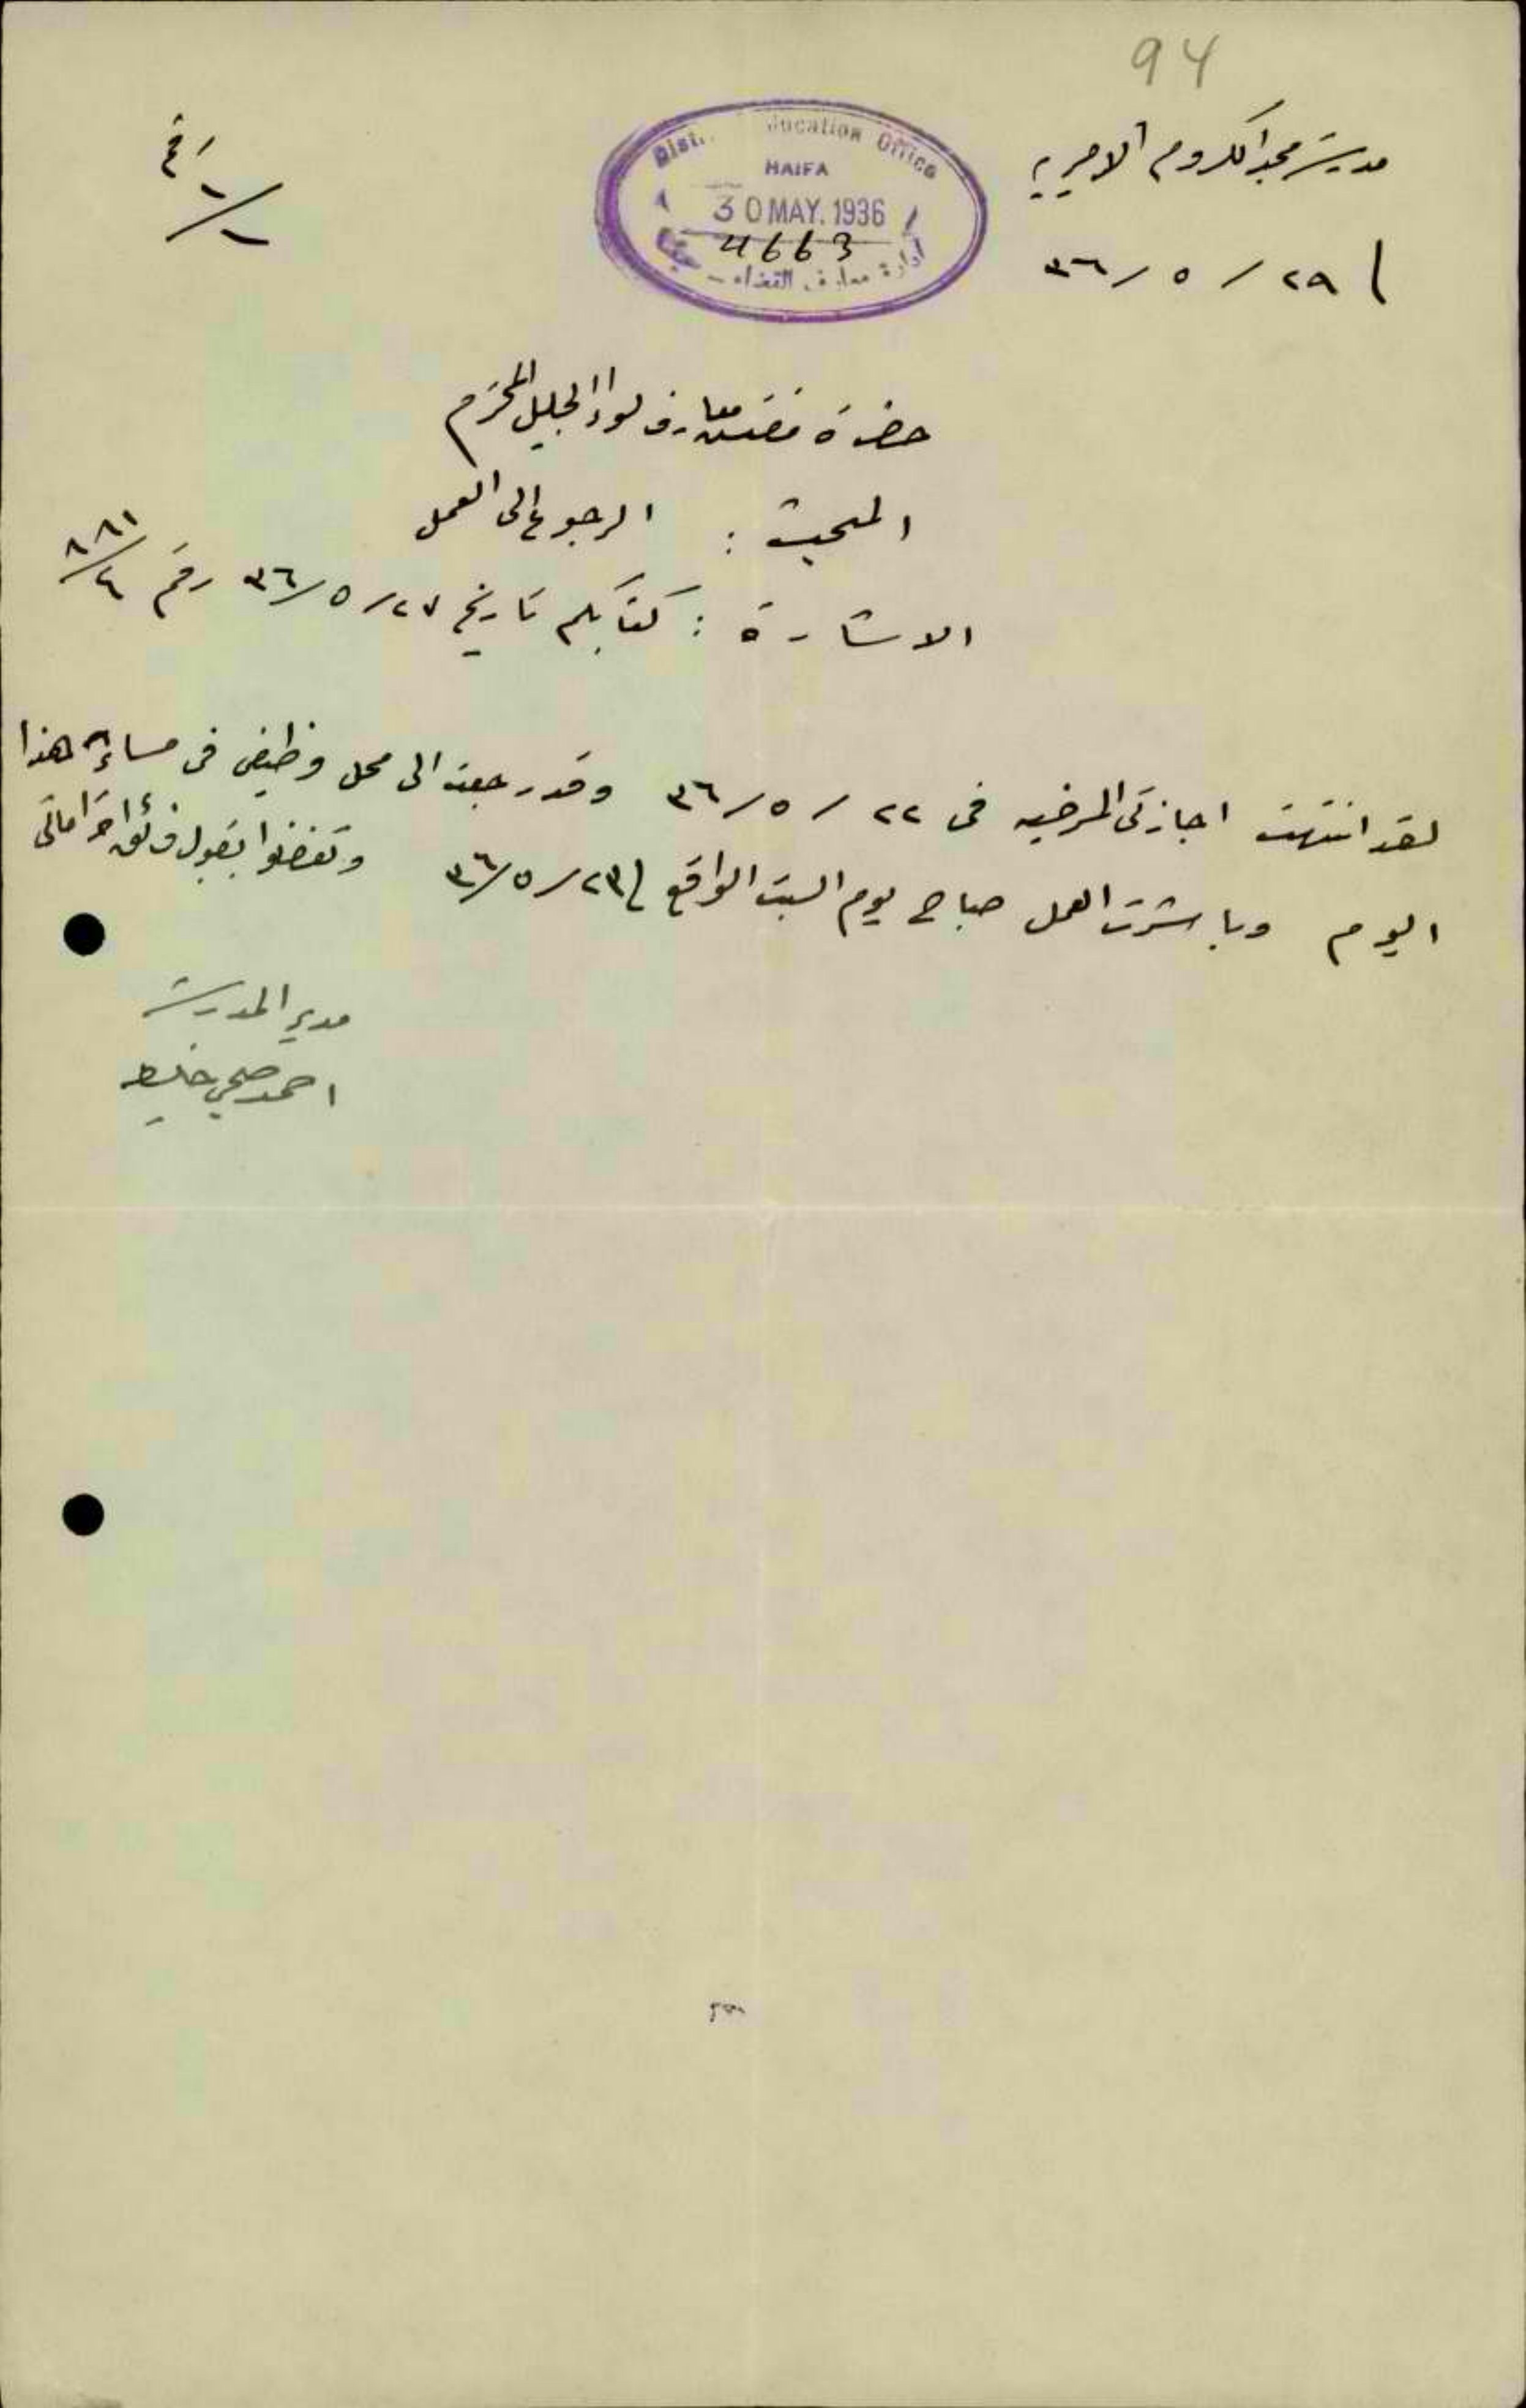 94
مدرسة مجد الكروم الاميرية
٢٩ / ٥ / ٣٦
رقم ١/١
Education Office
HAIFA
30 MAY. 1936
4663
ادارة معارف القضاء - حيفا
حضرة مفتش معارف لواء الجليل المحترم
المبحث : الرجوع الى العمل
الاشارة : كتابكم تاريخ ٢٧/٥/٣٦ رقم
لقد انتهت اجازتي المرضيه في ٢٢ / ٥ / ٣٦ وقد رجعت الى محل وظيفتي في مساء هذا
اليوم وباشرت العمل صباح يوم السبت الواقع في ٢٣/٥/٣٦ وتفضلوا بقبول فائق احتراماتي
مدير المدرسة
احمد صبحي